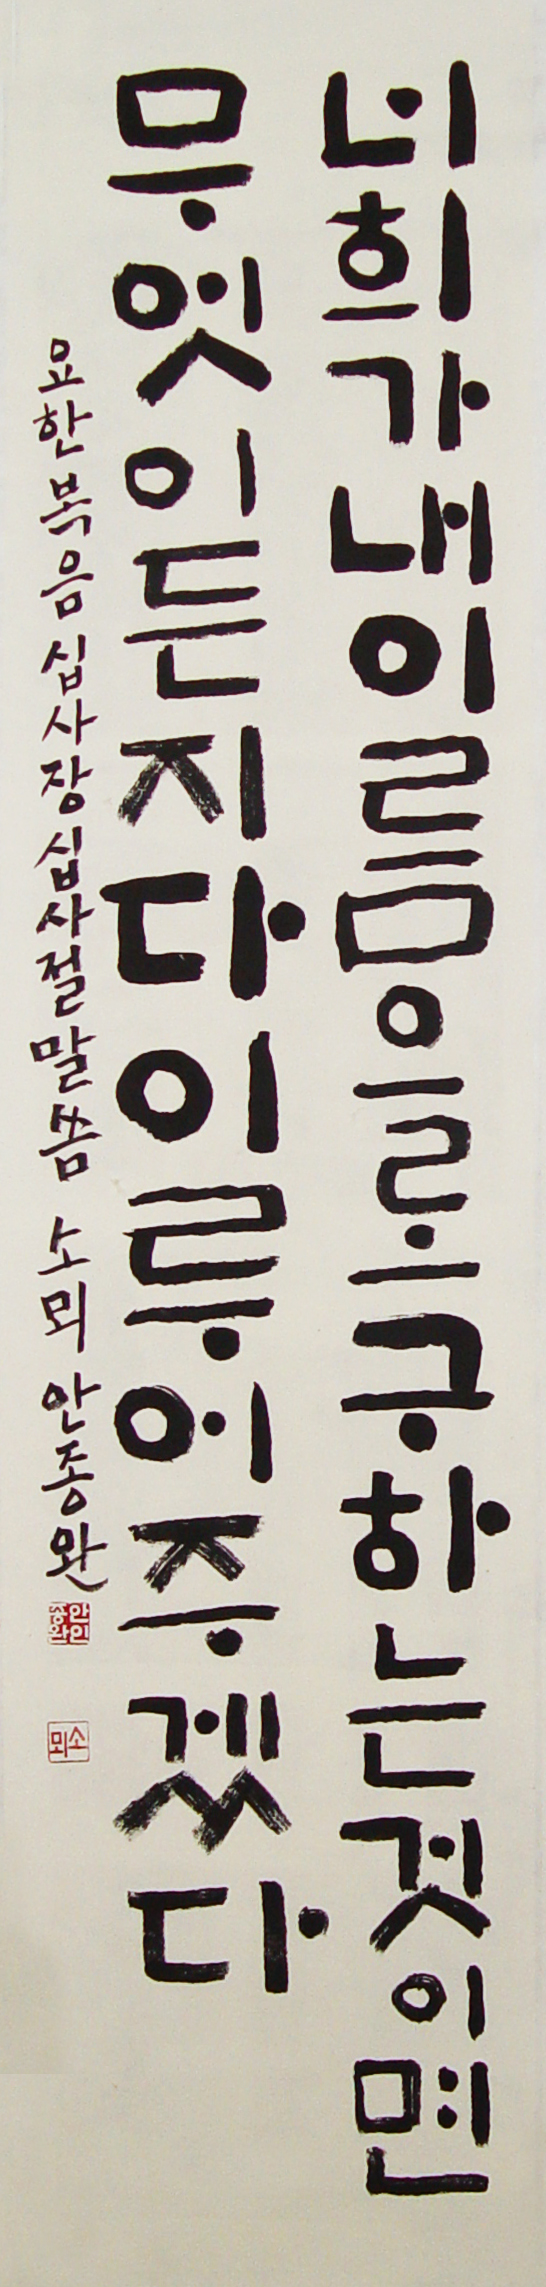 너희가내이름으로구하는것이면
무엇이든지다이루어주겠다
요한복음십사장십사절말씀 소뫼 안종완
안인종완
소뫼